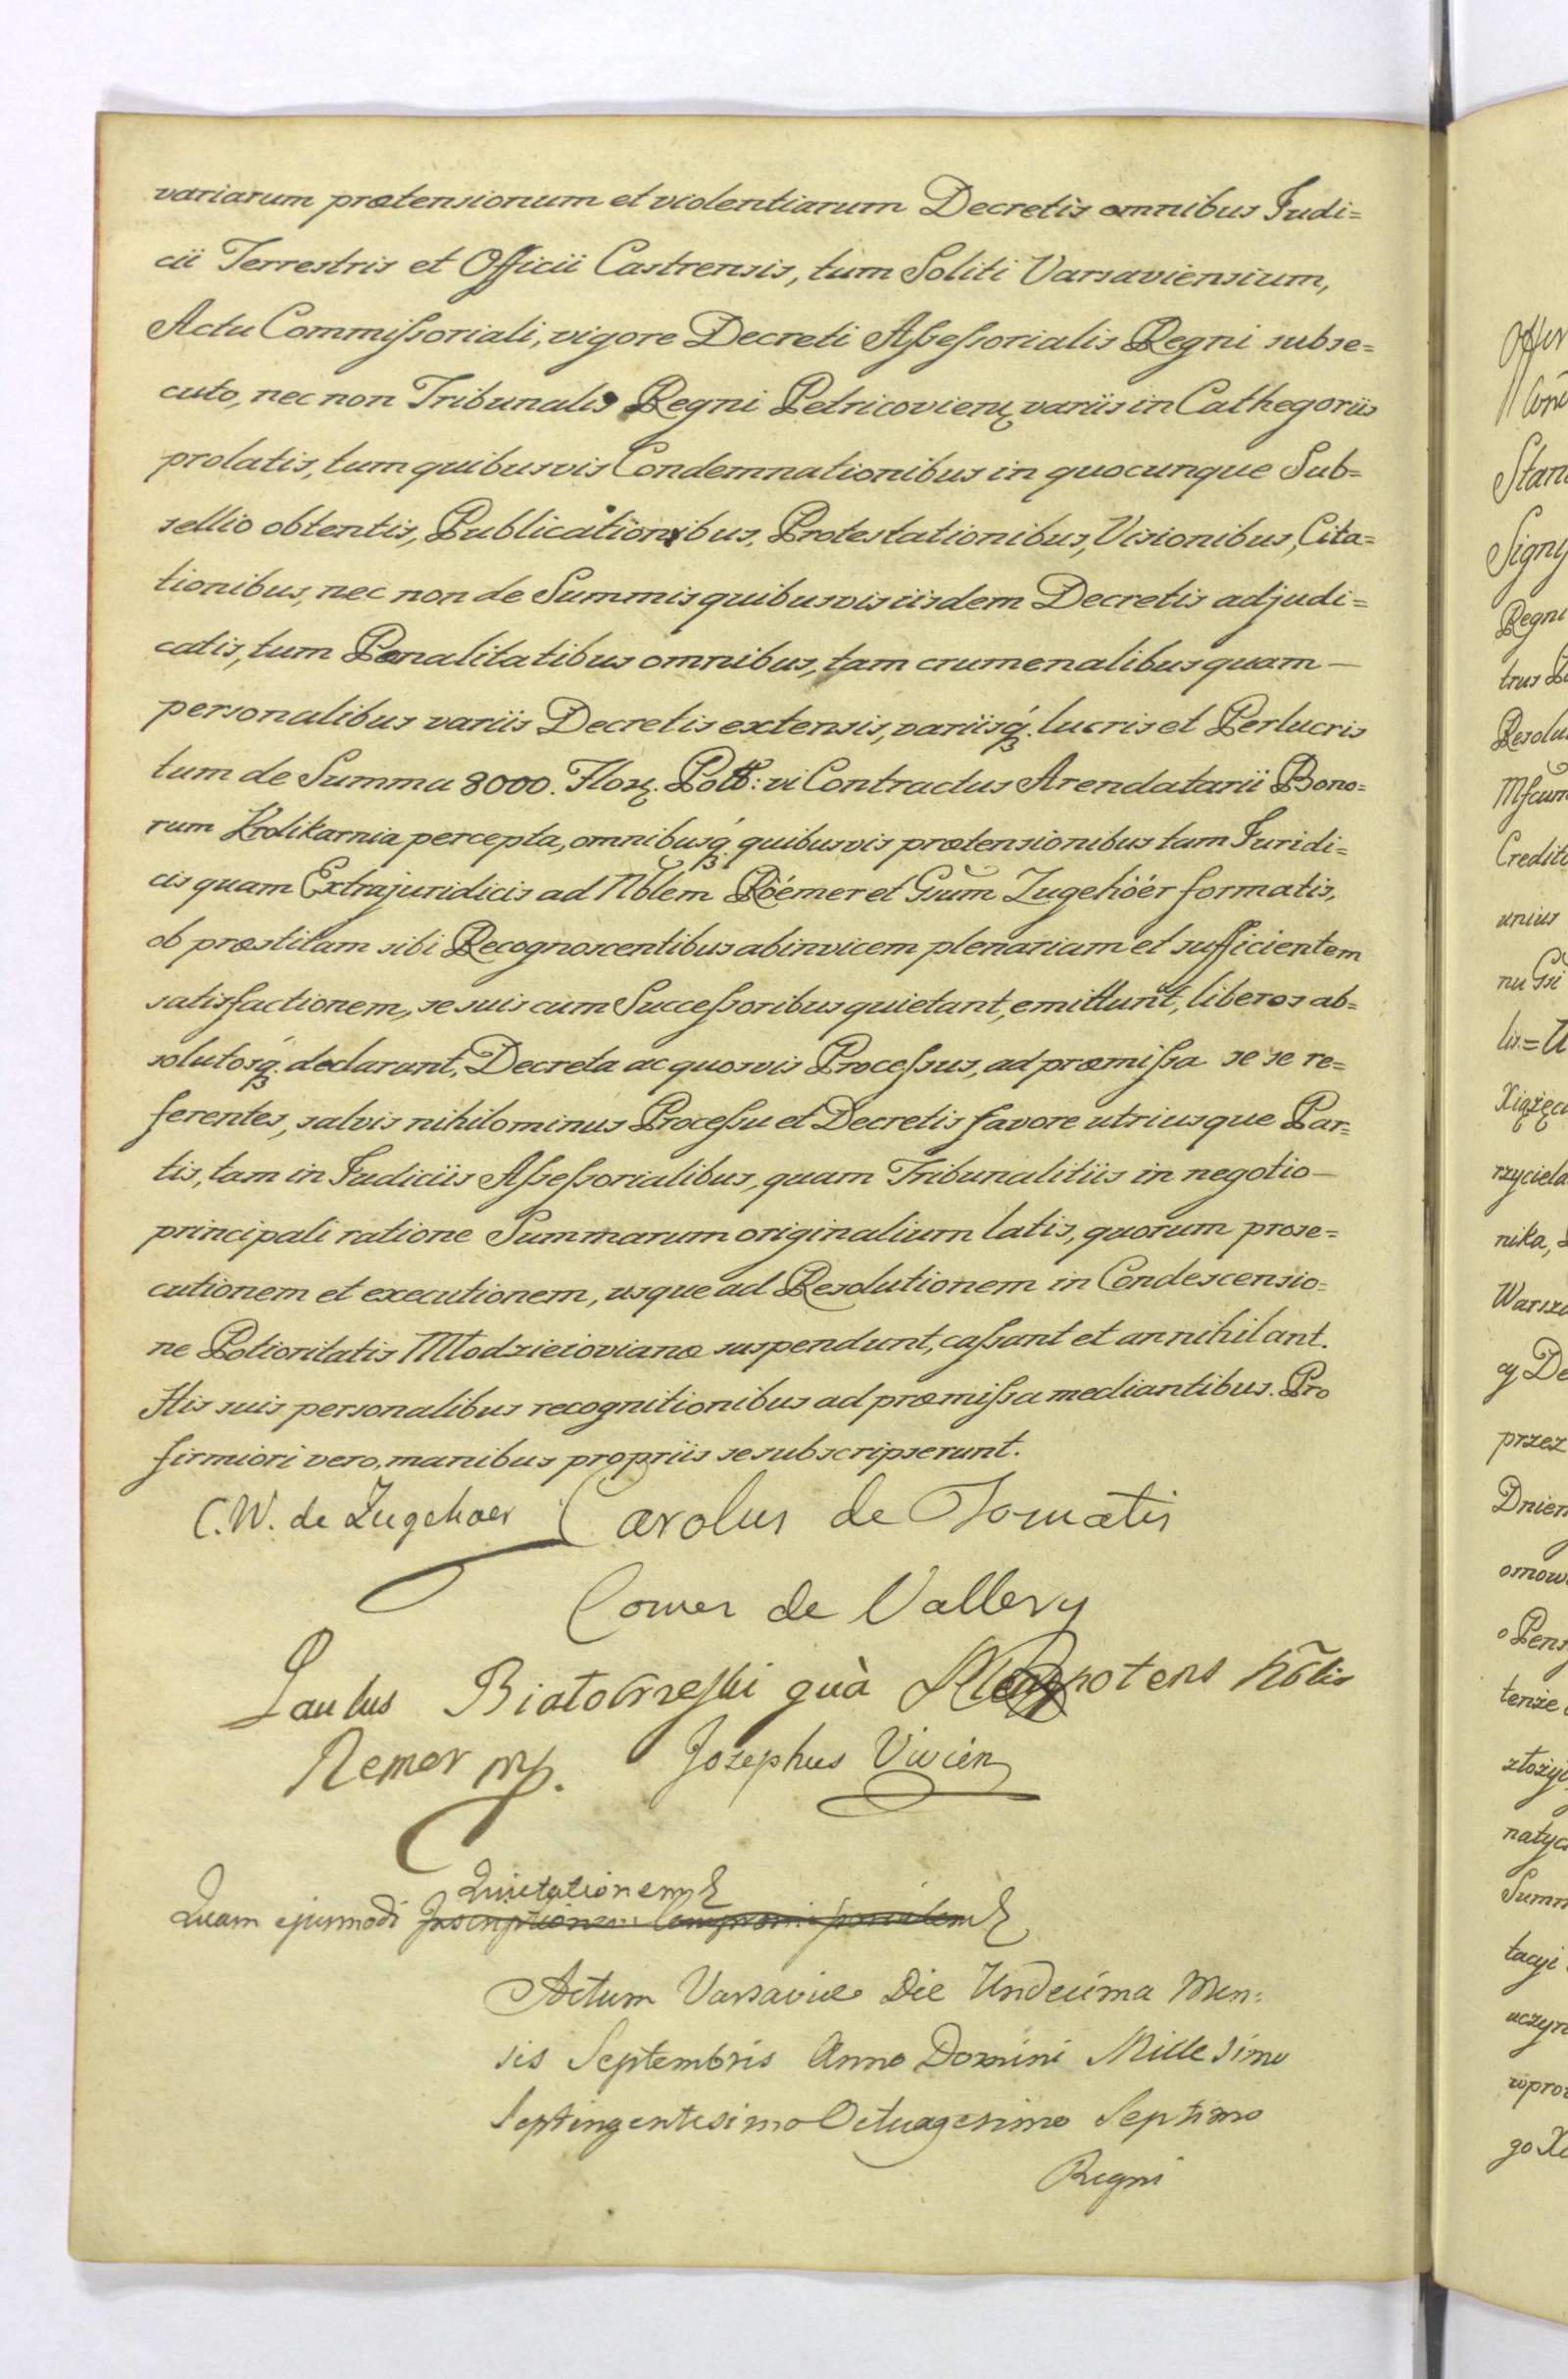 variarum prætensionum et violentiarum Decretis omnibus Judi=
cii Terrestris et Officii Castrensis, tum Soliti Varsaviensium,
Actu Commiſsoriali, vigore Decreti Aſseſsorialis Regni subse=
cuto, nec non Tribunalis Regni Petricovien variis in Cathegoriis
prolatis, tum quibusvis Condemnationibus in quocunque Sub=
sellio obtentis, Publicationibus, Protestationibus, Visionibus, Cita=
tionibus, nec non de Summis quibusvis iisdem Decretis adjudi=
catis, tum Pœnalitatibus omnibus, tam crumenalibus quam —
personalibus variis Decretis extensis, variisq́. lucris et Perlucris
tum de Summa 8000. Flor. Poll: vi Contractus Arendatarii Bono=
rum Krolikarnia percepta, omnibusq́ quibusvis prætensionibus tam Juridi=
cis quam Extrajuridicis ad Nblem Röemer et Gsum Zugehöer formatis,
ob præstitam sibi Recognoscentibus abinvicem plenariam et sufficientem
satisfactionem, se suis cum Succeſsoribus quietant, emittunt, liberos ab=
solutosq́. declarant, Decreta ac quosvis Proceſsus, ad præmiſsa se se re=
ferentes, salvis nihilominus Proceſsu et Decretis favore utriusque Par=
tis, tam in Judiciis Aſseſsorialibus, quam Tribunalitiis in negotio —
principali ratione Summarum originalium latis, quorum prose=
cutionem et executionem, usque ad Resolutionem in Condescensio=
ne Potioritatis Młodzieiovianæ suspendunt, caſsant et annihilant.
His suis personalibus recognitionibus ad præmiſsa mediantibus. Pro
firmiori vero, manibus propriis se subscripserunt.
C. W. de Zugehoer Carolus de Tomatis
Comes de Vallery
Paulus Białobrzeski quà Plenipotens Nõlis
Remer mp. Josephus Vivien
Quietationem
Quam ejusmodi Inscriptionem Compromissorialem
Actum Varsaviæ Die Undecima Men:
sis Septembris Anno Domini Millesimo
Septingentesimo Octuagesimo Septimo
Regni